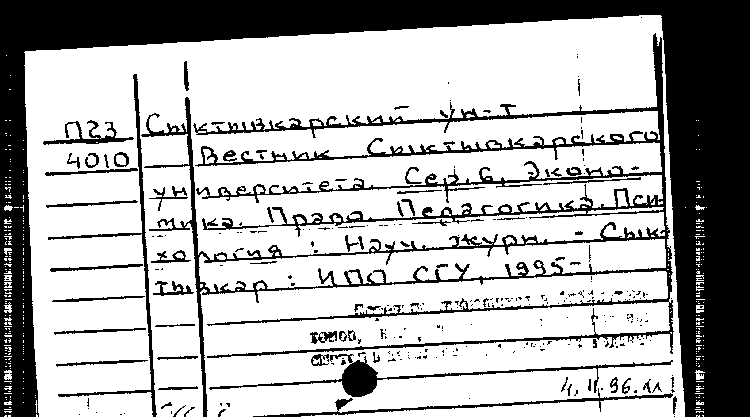 П23 Сыктывкарский ун-т
4010 Вестник Сыктывкарского
университета. Сер. 6, Эконо-
мика. Право. Педагогика. Пси
хология : Науч. журн. - Сык
тывкар : ИПО СГУ, 1995-
томов,
4.11.96